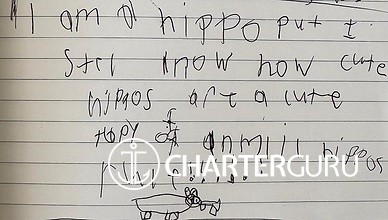 I am a hippo put I
Stil know how cute
hippos are a cute
topy of anmiil hippos
CHARTERGURU